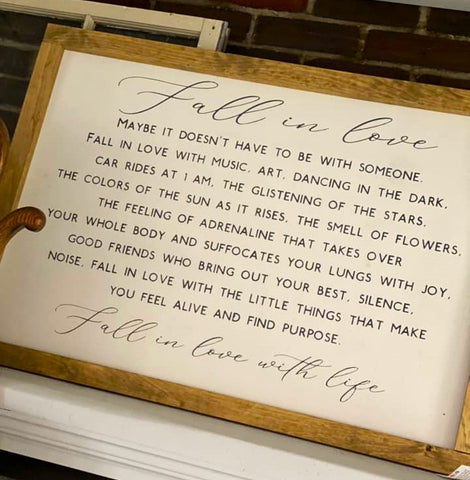 Fall in love
MAYBE IT DOESN'T HAVE TO BE WITH SOMEONE.
FALL IN LOVE WITH MUSIC, ART, DANCING IN THE DARK,
CAR RIDES AT 1 AM, THE GLISTENING OF THE STARS,
THE COLORS OF THE SUN AS IT RISES, THE SMELL OF FLOWERS,
THE FEELING OF ADRENALINE THAT TAKES OVER
YOUR WHOLE BODY AND SUFFOCATES YOUR LUNGS WITH JOY,
GOOD FRIENDS WHO BRING OUT YOUR BEST, SILENCE,
NOISE, FALL IN LOVE WITH THE LITTLE THINGS THAT MAKE
YOU FEEL ALIVE AND FIND PURPOSE.
Fall in love with life